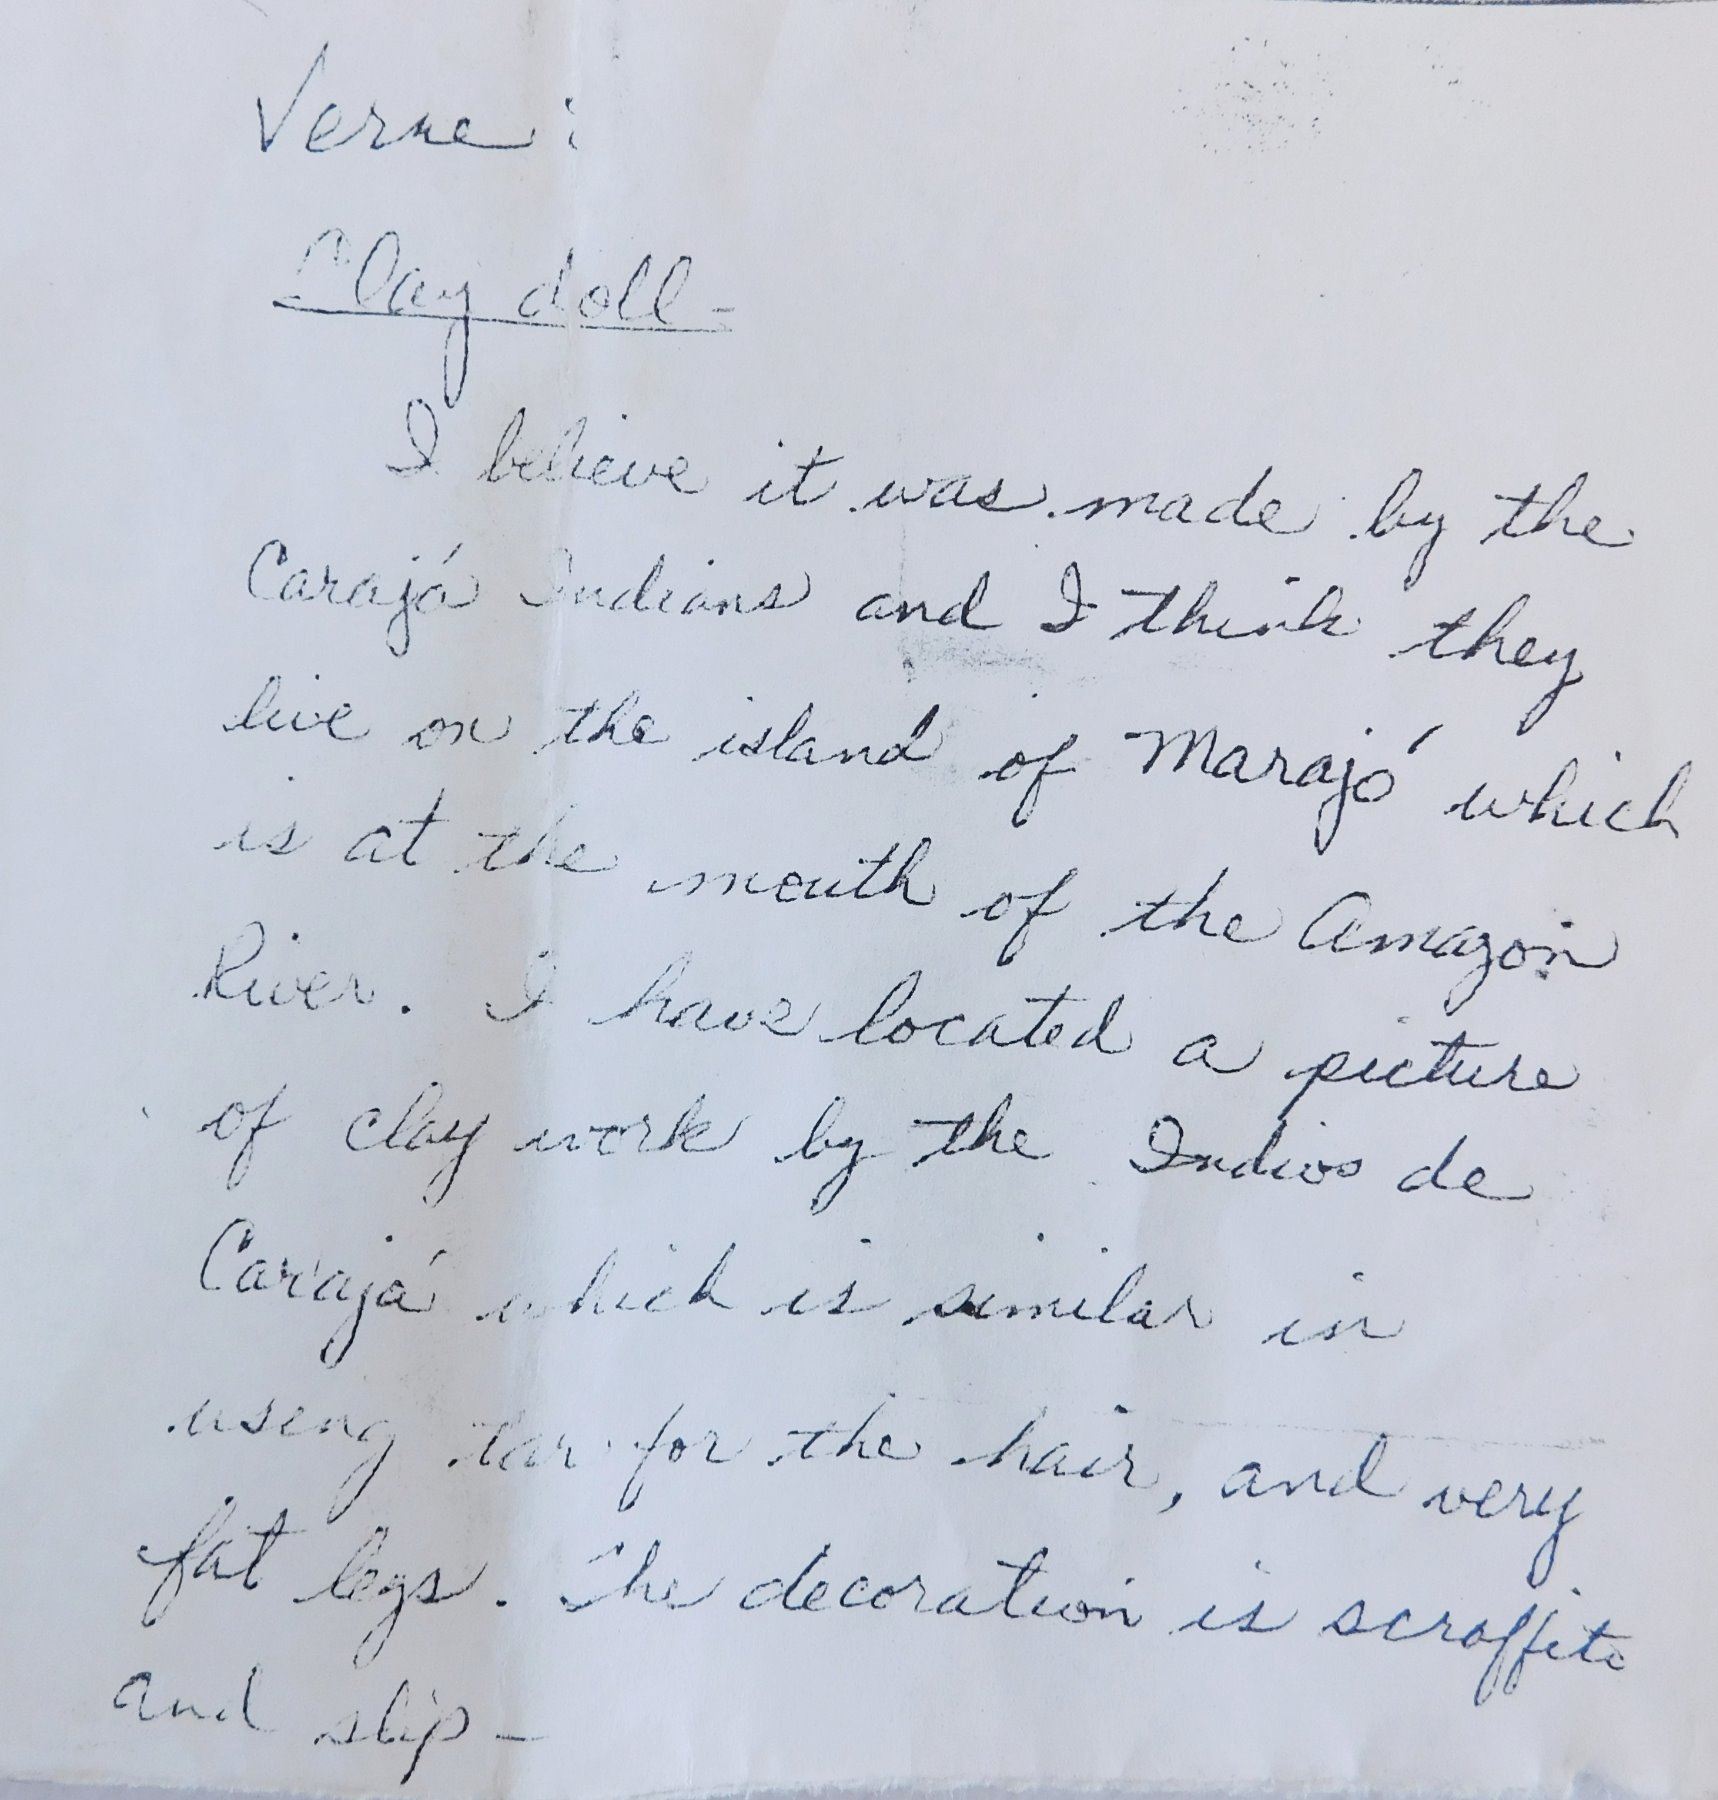 Verne:
Clay doll-
I believe it was made by the
Carajá Indians and I think they
live on the island of Marajó which
is at the mouth of the Amazon
River. I have located a picture
of clay work by the Indios de
Carajá which is similar in
using tar for the hair, and very
fat legs. The decoration is scraffito
and slip-